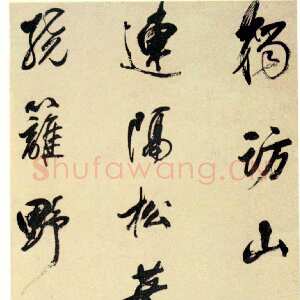 獨訪山
連隔松
繞籬野
Shufawang.cn